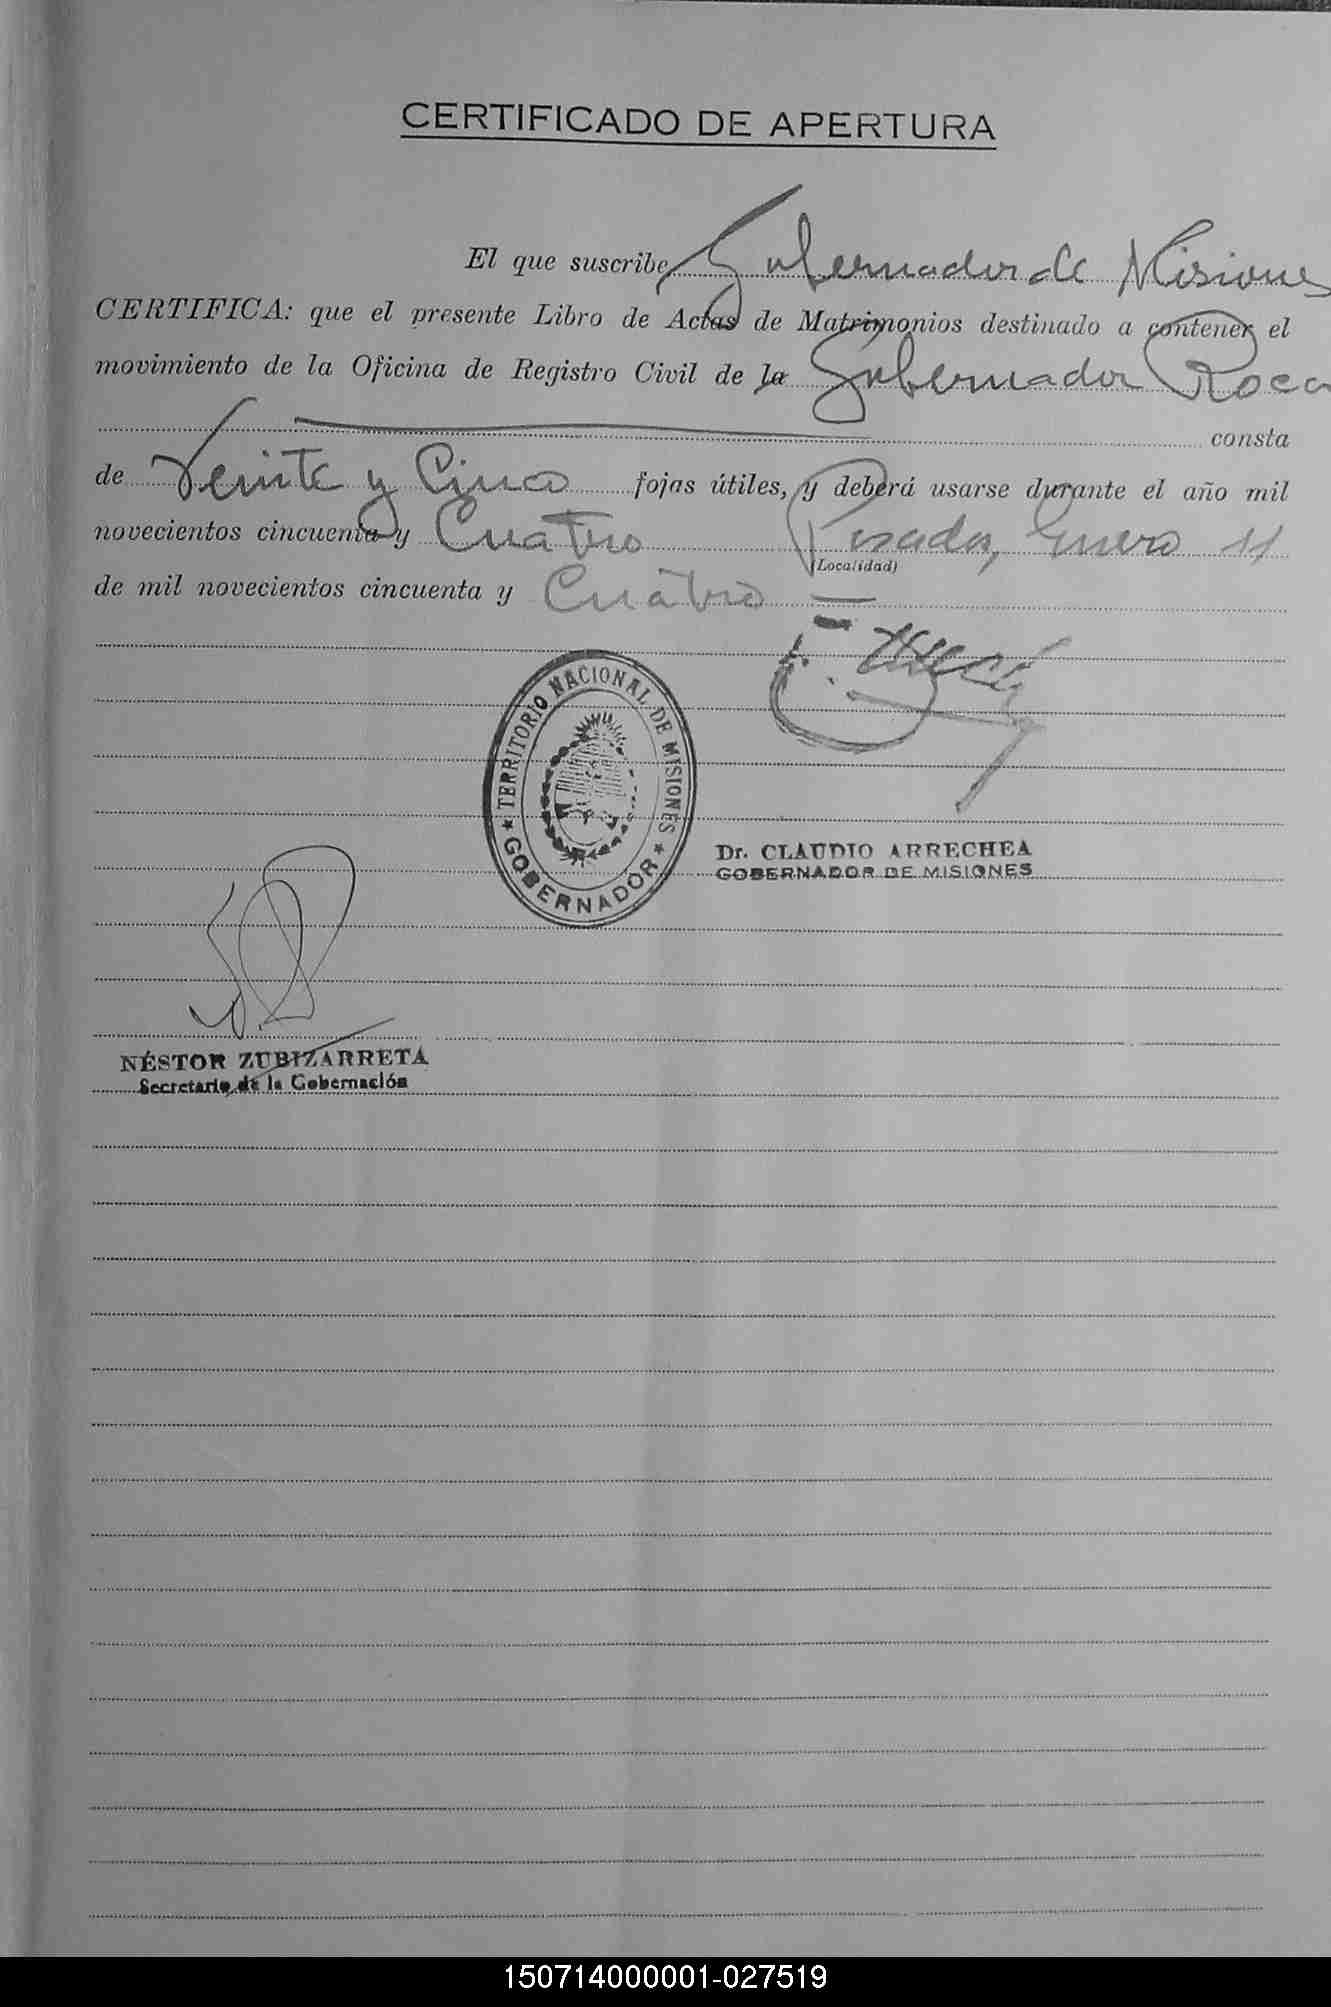 CERTIFICADO DE APERTURA
El que suscribe Gobernador de Misiones
CERTIFICA: que el presente Libro de Actas de Matrimonios destinado a contener el
movimiento de la Oficina de Registro Civil de la Gobernador Roca
consta
de Veinte y Cinco fojas útiles, y deberá usarse durante el año mil
novecientos cincuenta y Cuatro Posadas, Enero 11
(Localidad)
de mil novecientos cincuenta y Cuatro
TERRITORIO NACIONAL DE MISIONES
GOBERNADOR
Dr. CLAUDIO ARRECHEA
GOBERNADOR DE MISIONES
NÉSTOR ZUBIZARRETA
Secretario de la Gobernación
150714000001-027519